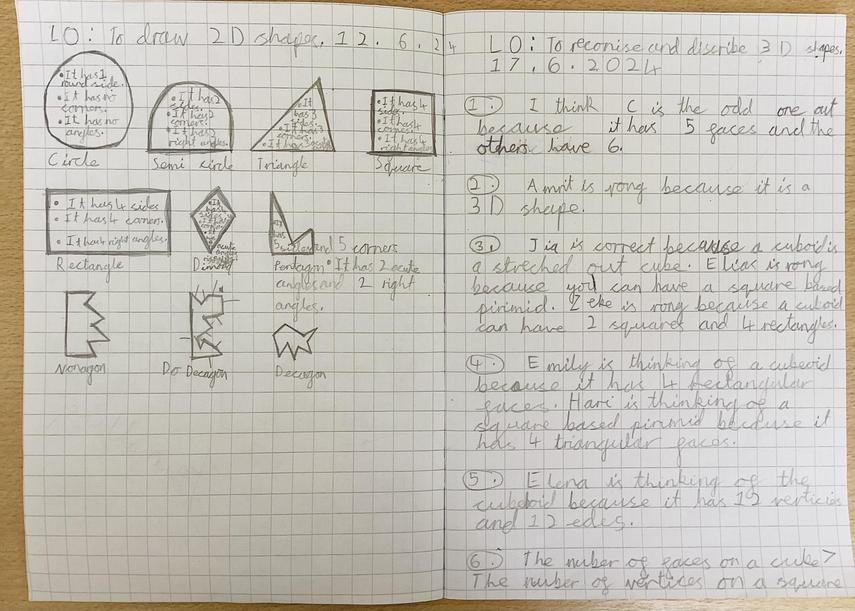 LO: To draw 2D shapes. 12.6.24
• It has 1
round side.
• It has no
corners.
• It has no
angles.
Circle
• It has 2
sides.
• It has 2
corners.
• It has 2
right angles.
Semi circle
• It
has 3
sides.
• It has 3
corners.
• It has
Triangle
• It has 4
sides.
• It has 4
corners.
• It has 4
right angles
Square
• It has 4 sides
• It has 4 corners.
• It has 4 right angles.
Rectangle
Dimond
It
has
5 sides and 5 corners
Pentagon • It has 2 acute
angles and 2 right
angles.
Nonagon
Do Decagon
Decagon
LO: To reconise and discribe 3D shapes.
17.6.2024
1. I think C is the odd one out
because it has 5 faces and the
others have 6.
2. Amrit is rong because it is a
3D shape.
3. Jia is correct because a cuboid is
a streched out cube. Elias is rong
because you can have a square based
pirimid. Zeke is rong because a cuboid
can have 2 squares and 4 rectangles.
4. Emily is thinking of a cubeoid
because it has 4 rectangular
faces. Hari is thinking of a
square based pirimid because it
has 4 triangular faces.
5. Elena is thinking of the
cubeoid because it has 12 verticies
and 12 edes.
6. The nuber of faces on a cube >
The nuber of vertices on a square